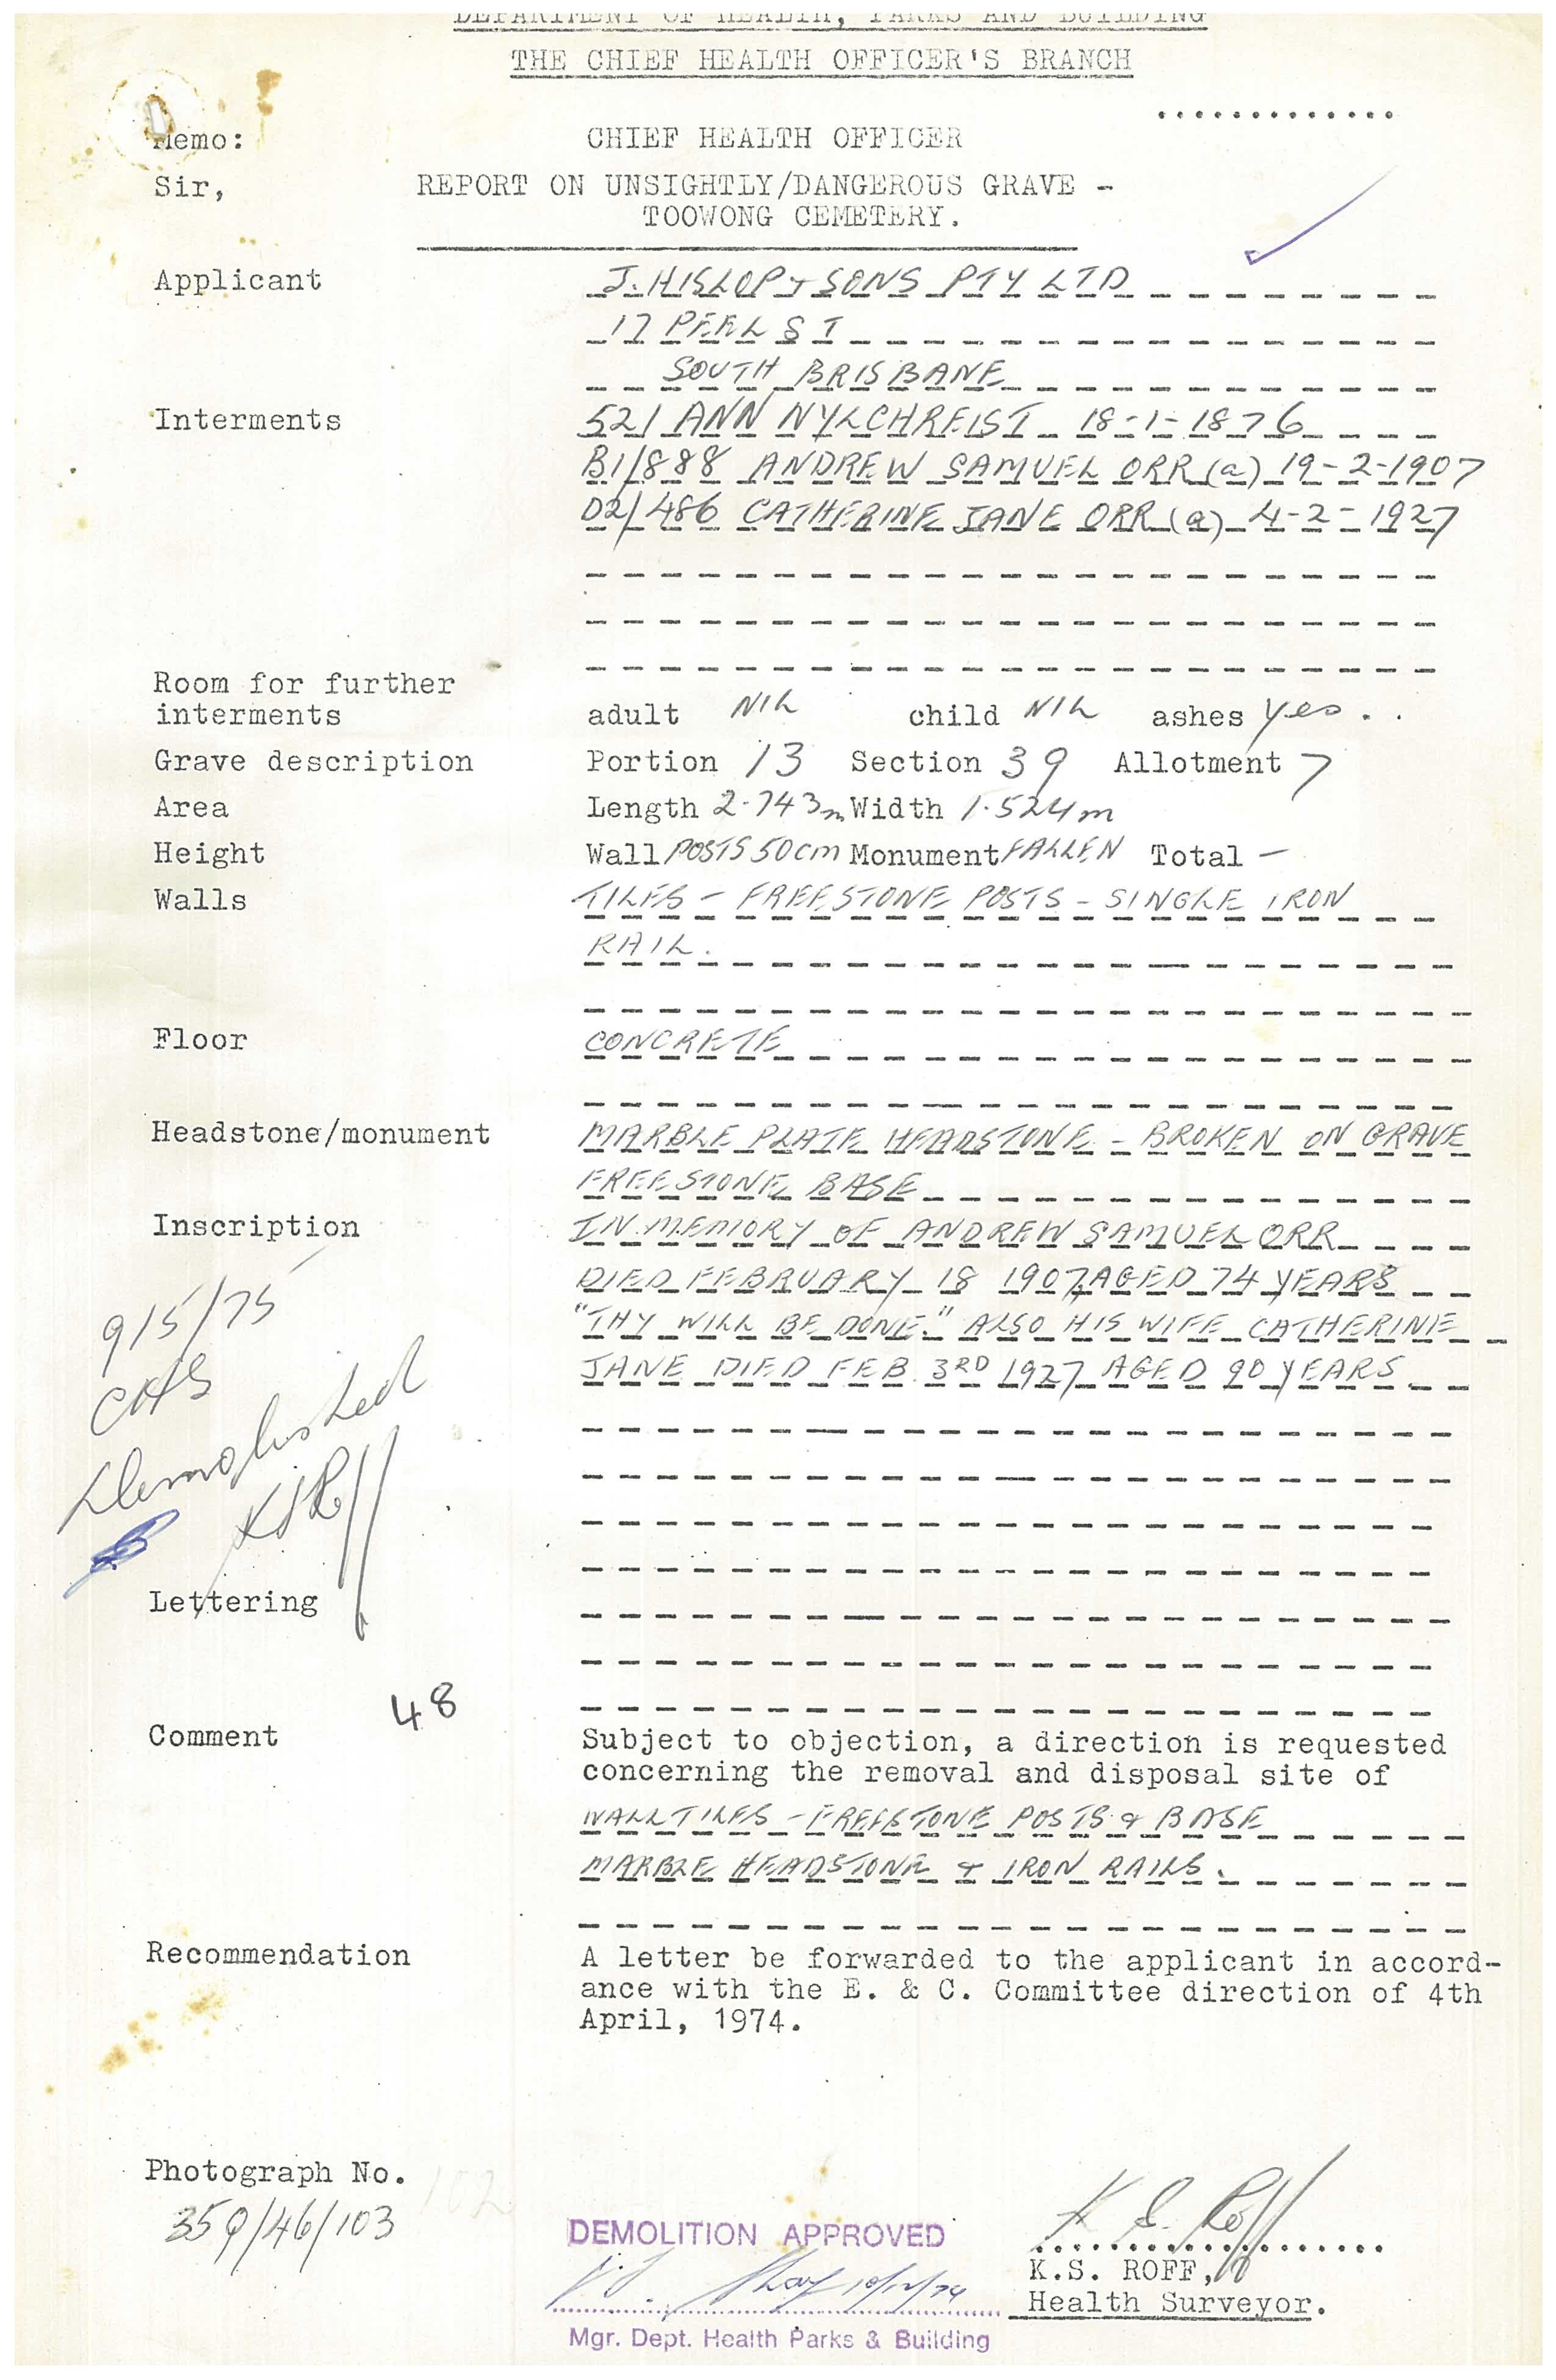 DEPARTMENT OF HEALTH, PARKS AND BUILDING
THE CHIEF HEALTH OFFICER'S BRANCH
Memo: CHIEF HEALTH OFFICER
Sir, REPORT ON UNSIGHTLY/DANGEROUS GRAVE -
TOOWONG CEMETERY.
Applicant J. HISLOP & SONS PTY LTD
17 PEEL ST
SOUTH BRISBANE
Interments 521 ANN NYLCHREIST 18-1-1876
B1/888 ANDREW SAMUEL ORR (a) 19-2-1907
D2/486 CATHERINE JANE ORR (a) 4-2-1927
Room for further
interments adult NIL child NIL ashes yes..
Grave description Portion 13 Section 39 Allotment 7
Area Length 2.743m Width 1.524m
Height Wall POSTS 50cm Monument FALLEN Total -
Walls TILES - FREESTONE POSTS - SINGLE IRON
RAIL.
Floor CONCRETE
Headstone/monument MARBLE PLATE HEADSTONE - BROKEN ON GRAVE
FREESTONE BASE
Inscription IN MEMORY OF ANDREW SAMUEL ORR
DIED FEBRUARY 18 1907 AGED 74 YEARS
"THY WILL BE DONE." ALSO HIS WIFE CATHERINE
JANE DIED FEB. 3RD 1927 AGED 90 YEARS
9/5/75
CHS
Demolished
KSRoff
Lettering
48
Comment Subject to objection, a direction is requested
concerning the removal and disposal site of
WALL TILES - FREESTONE POSTS & BASE
MARBLE HEADSTONE & IRON RAILS.
Recommendation A letter be forwarded to the applicant in accord-
ance with the E. & C. Committee direction of 4th
April, 1974.
Photograph No. 102
359/46/103
DEMOLITION APPROVED
10/12/74
K S. Roff
K.S. ROFF,
Health Surveyor.
Mgr. Dept. Health Parks & Building